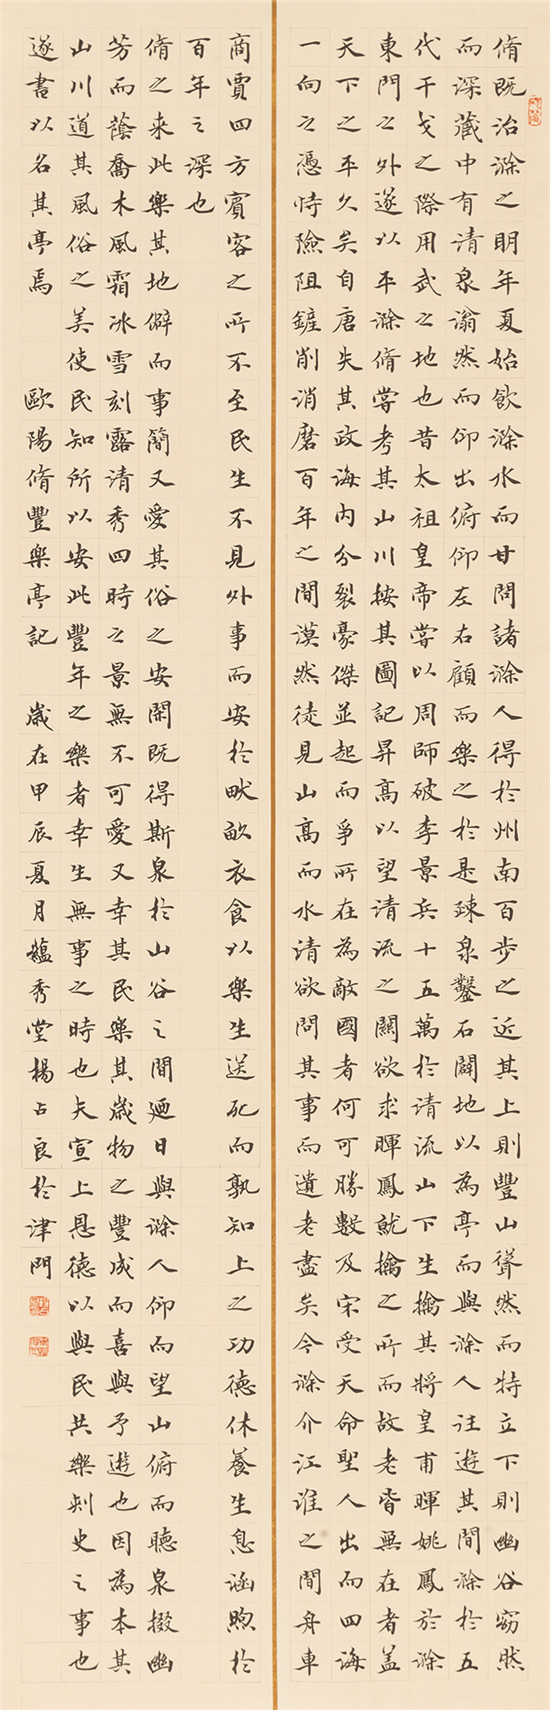 脩既治滁之明年夏始飲滁水而甘問諸滁人得於州南百步之近其上則豐山聳然而特立下則幽谷窈然
而深藏中有清泉滃然而仰出俯仰左右顧而樂之於是疎泉鑿石闢地以為亭而與滁人往遊其間滁於五
代干戈之際用武之地也昔太祖皇帝嘗以周師破李景兵十五萬於清流山下生擒其將皇甫暉姚鳳於滁
東門之外遂以平滁脩嘗考其山川按其圖記昇高以望清流之關欲求暉鳳就擒之所而故老皆無在者盖
天下之平久矣自唐失其政海內分裂豪傑並起而爭所在為敵國者何可勝數及宋受天命聖人出而四海
一向之憑恃險阻鏟削消磨百年之間漠然徒見山高而水清欲問其事而遺老盡矣今滁介江淮之間舟車
商賈四方賓客之所不至民生不見外事而安於畎畝衣食以樂生送死而孰知上之功德休養生息涵煦於
百年之深也
脩之来此樂其地僻而事簡又愛其俗之安閑既得斯泉於山谷之間廼日與滁人仰而望山俯而聽泉掇幽
芳而蔭喬木風霜冰雪刻露清秀四時之景無不可愛又幸其民樂其歲物之豐成而喜與予遊也因為本其
山川道其風俗之美使民知所以安此豐年之樂者幸生無事之時也夫宣上恩德以與民共樂刺史之事也
遂書以名其亭焉 歐陽脩豐樂亭記 歲在甲辰夏月蘊秀堂楊占良於津門